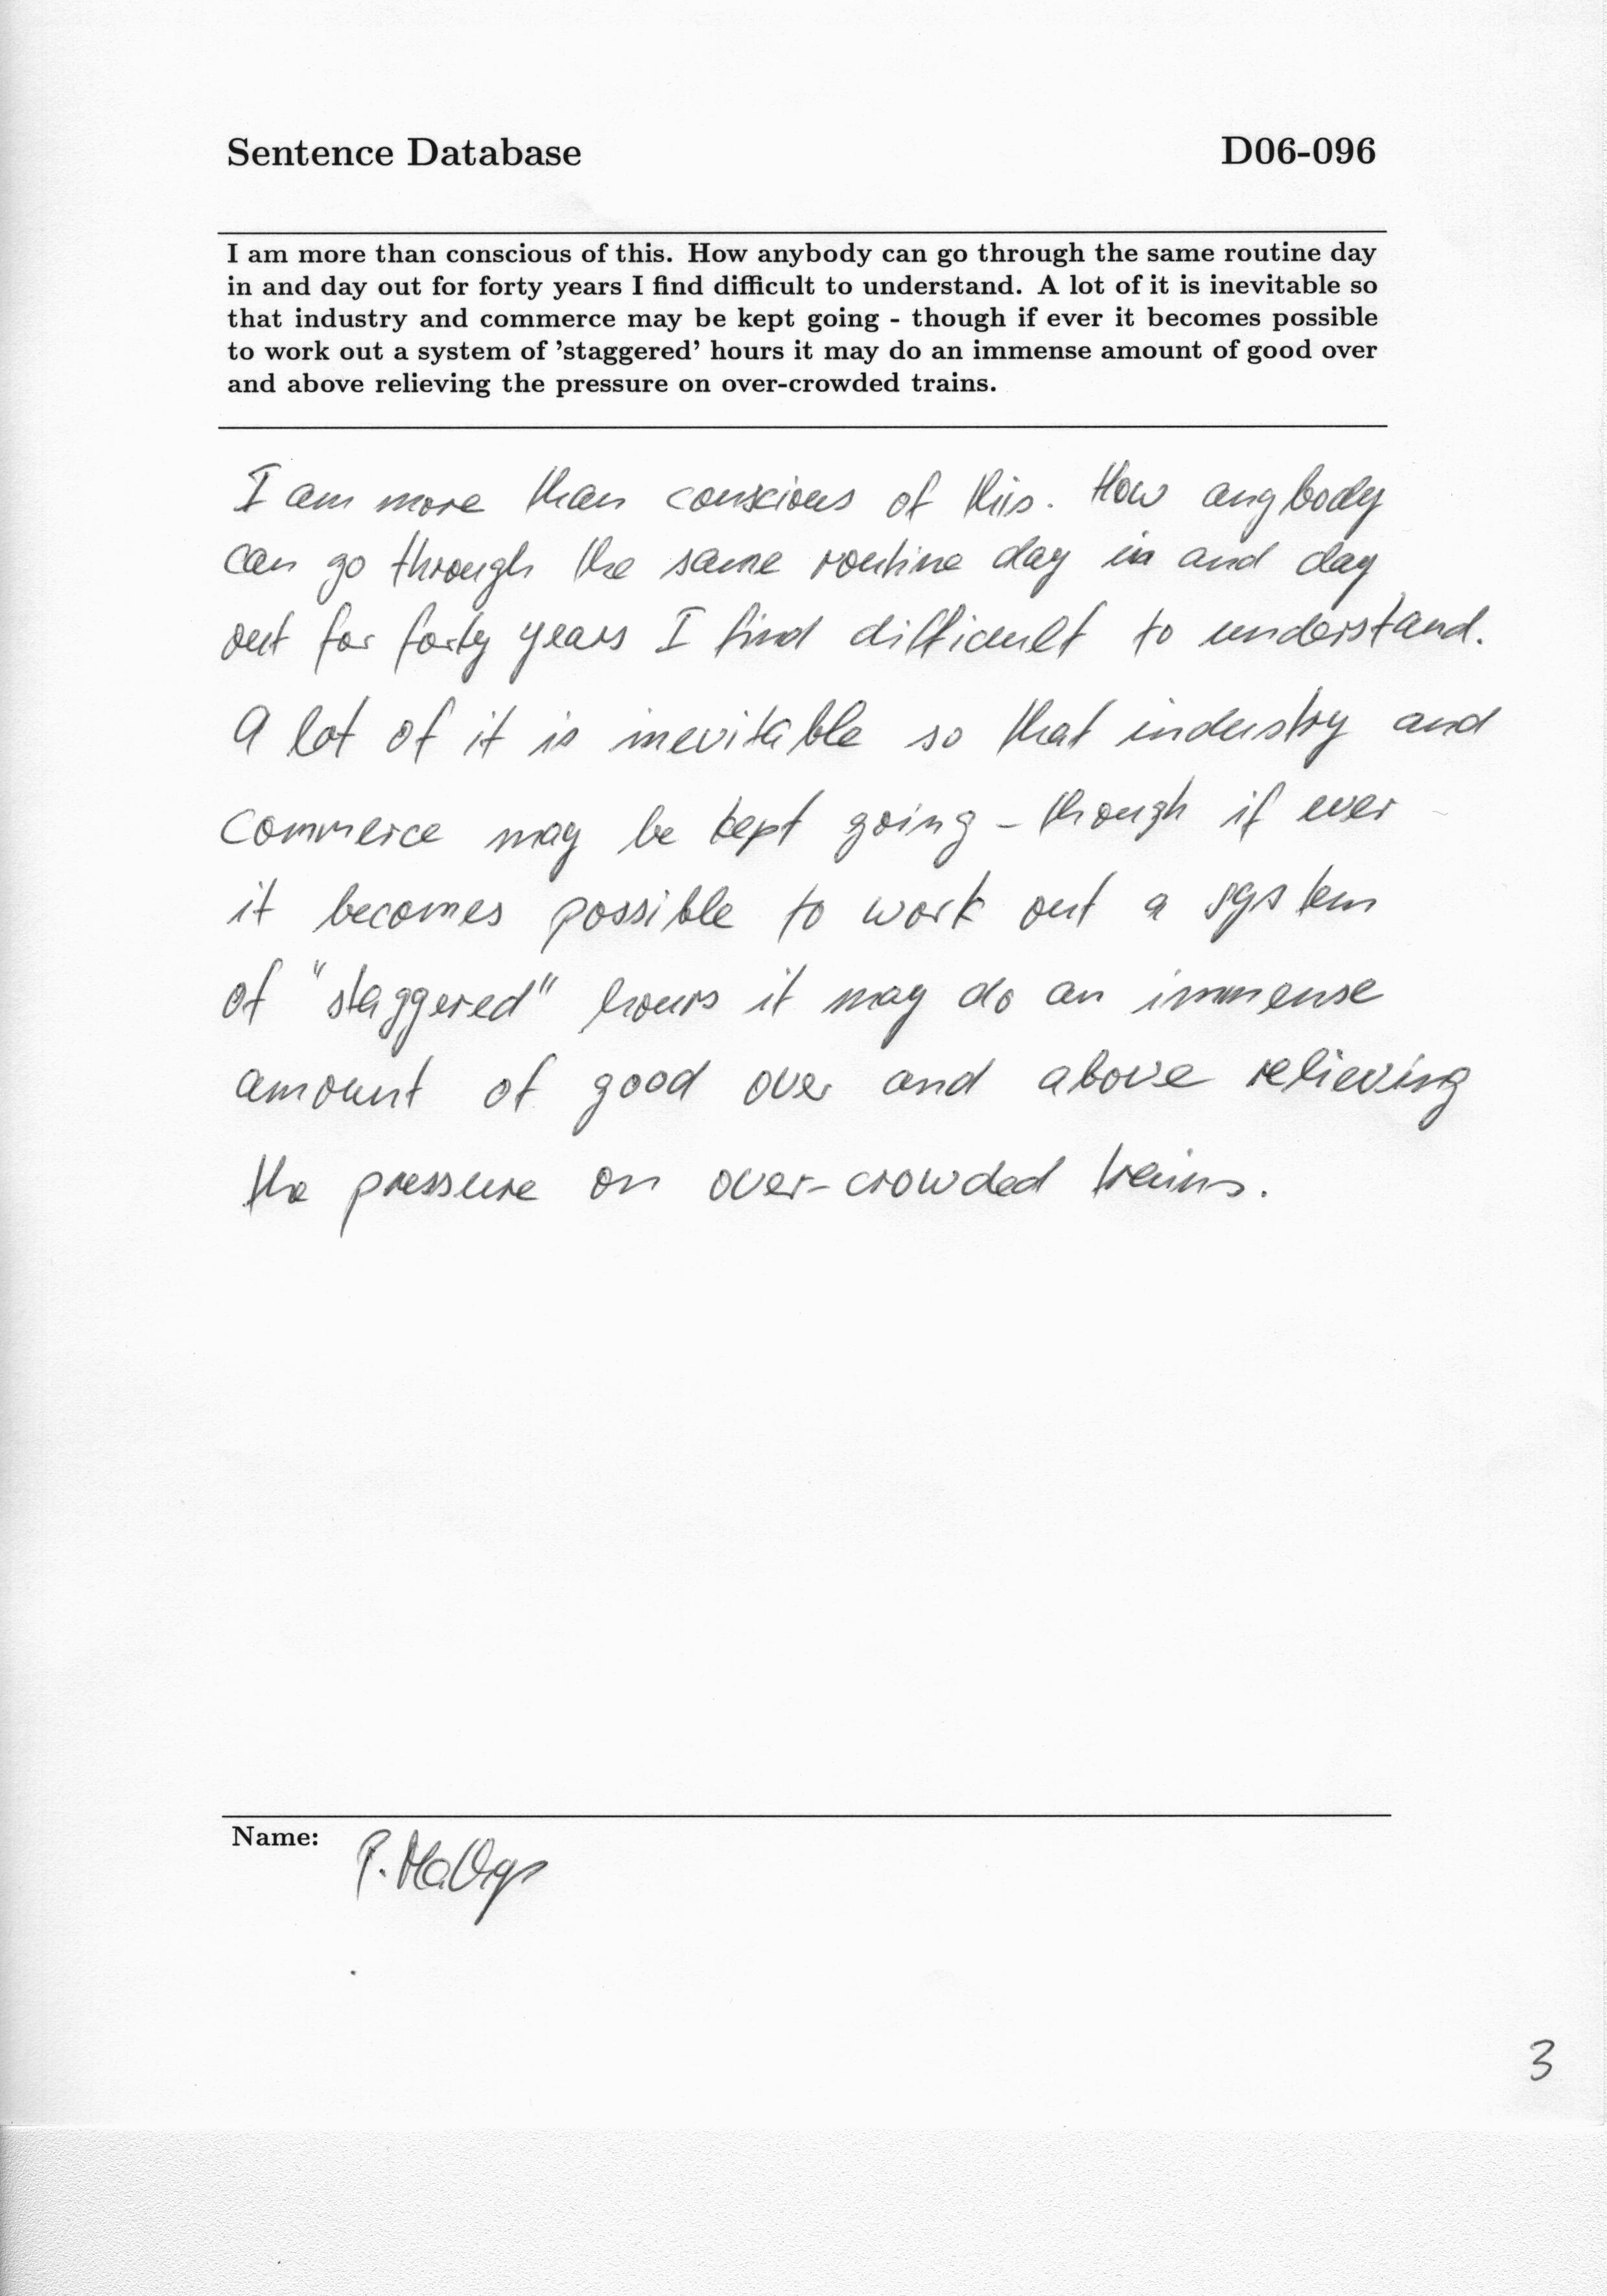 Sentence Database D06-096
I am more than conscious of this. How anybody can go through the same routine day
in and day out for forty years I find difficult to understand. A lot of it is inevitable so
that industry and commerce may be kept going - though if ever it becomes possible
to work out a system of 'staggered' hours it may do an immense amount of good over
and above relieving the pressure on over-crowded trains.
I am more than conscious of this. How anybody
can go through the same routine day in and day
out for forty years I find difficult to understand.
A lot of it is inevitable so that industry and
commerce may be kept going - though if ever
it becomes possible to work out a system
of "staggered" hours it may do an immense
amount of good over and above relieving
the pressure on over-crowded trains.
Name: P.
3